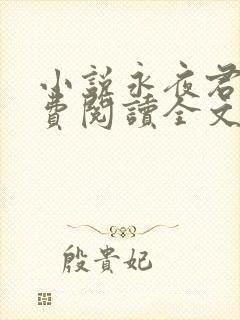 小說永夜君
費閱讀全文
殷貴妃